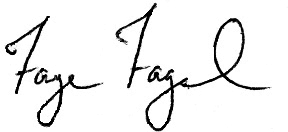 Faye Fagel